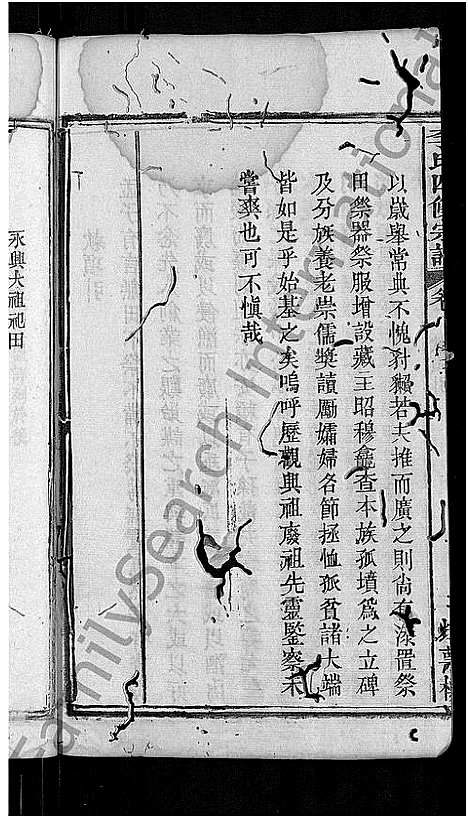 李氏四修宗譜
以歲舉常典不愧豺獺若夫推而廣之則尙有添置祭
田祭器祭服增設藏主昭穆龕查本族孤墳爲之立碑
及分族養老崇儒獎讀勵孀婦名節拯恤孤貧諸大端
皆如是乎始基之矣嗚呼歷觀與祖廢祖先靈鑒察禾
嘗爽也可不愼哉
永興大祖祀田
FamilySearch International